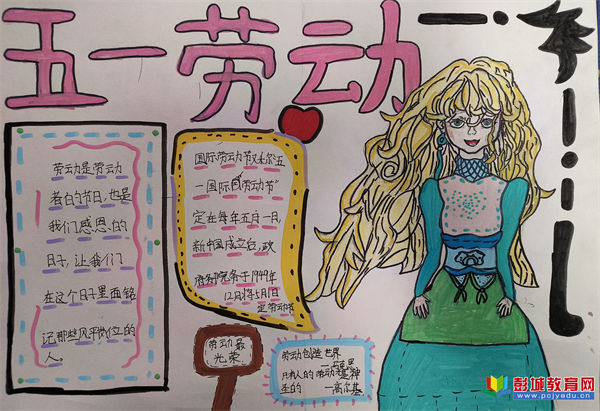 五一劳动
劳动是劳动
者们的节日,也是
我们感恩的
日子,让我们
在这个日子里面铭
记那些风平岗位的
人。
国际劳动节又称五
一国际劳动节"
定在每年五月一日,
新中国成立后,政
府务院务于1949年
12月将5月1日
定劳动节
劳动最
光荣
劳动创造世界
—马克思
只有人的劳动才是神
圣的 —高尔基
彭城教育网
www.pcjyedu.cn